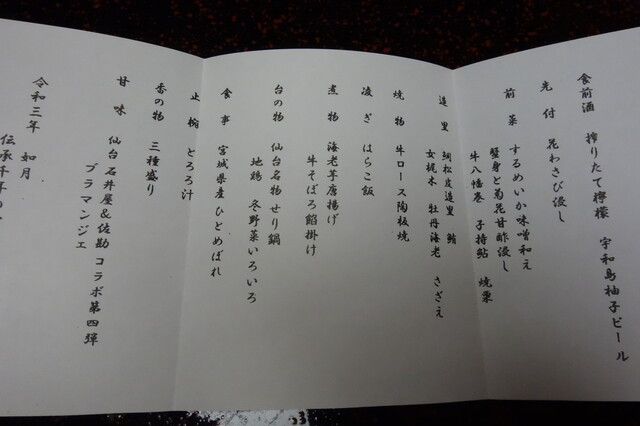 食前酒 搾りたて檸檬 宇和島柚子ビール
先付 花わさび浸し
前菜 するめいか味噌和え
蟹身と菊花甘酢浸し
牛八幡巻 子持鮎 焼栗
造里 鯛松皮造里 鮪
女梶木 牡丹海老 さざえ
焼物 牛ロース陶板焼
凌ぎ はらこ飯
煮物 海老芋唐揚げ
牛そぼろ餡掛け
台の物 仙台名物 せり鍋
地鶏 冬野菜いろいろ
食事 宮城県産 ひとめぼれ
止椀 とろろ汁
香の物 三種盛り
甘味 仙台石井屋&佐勘 コラボ第四弾
ブラマンジェ
令和三年 如月
伝承千年の